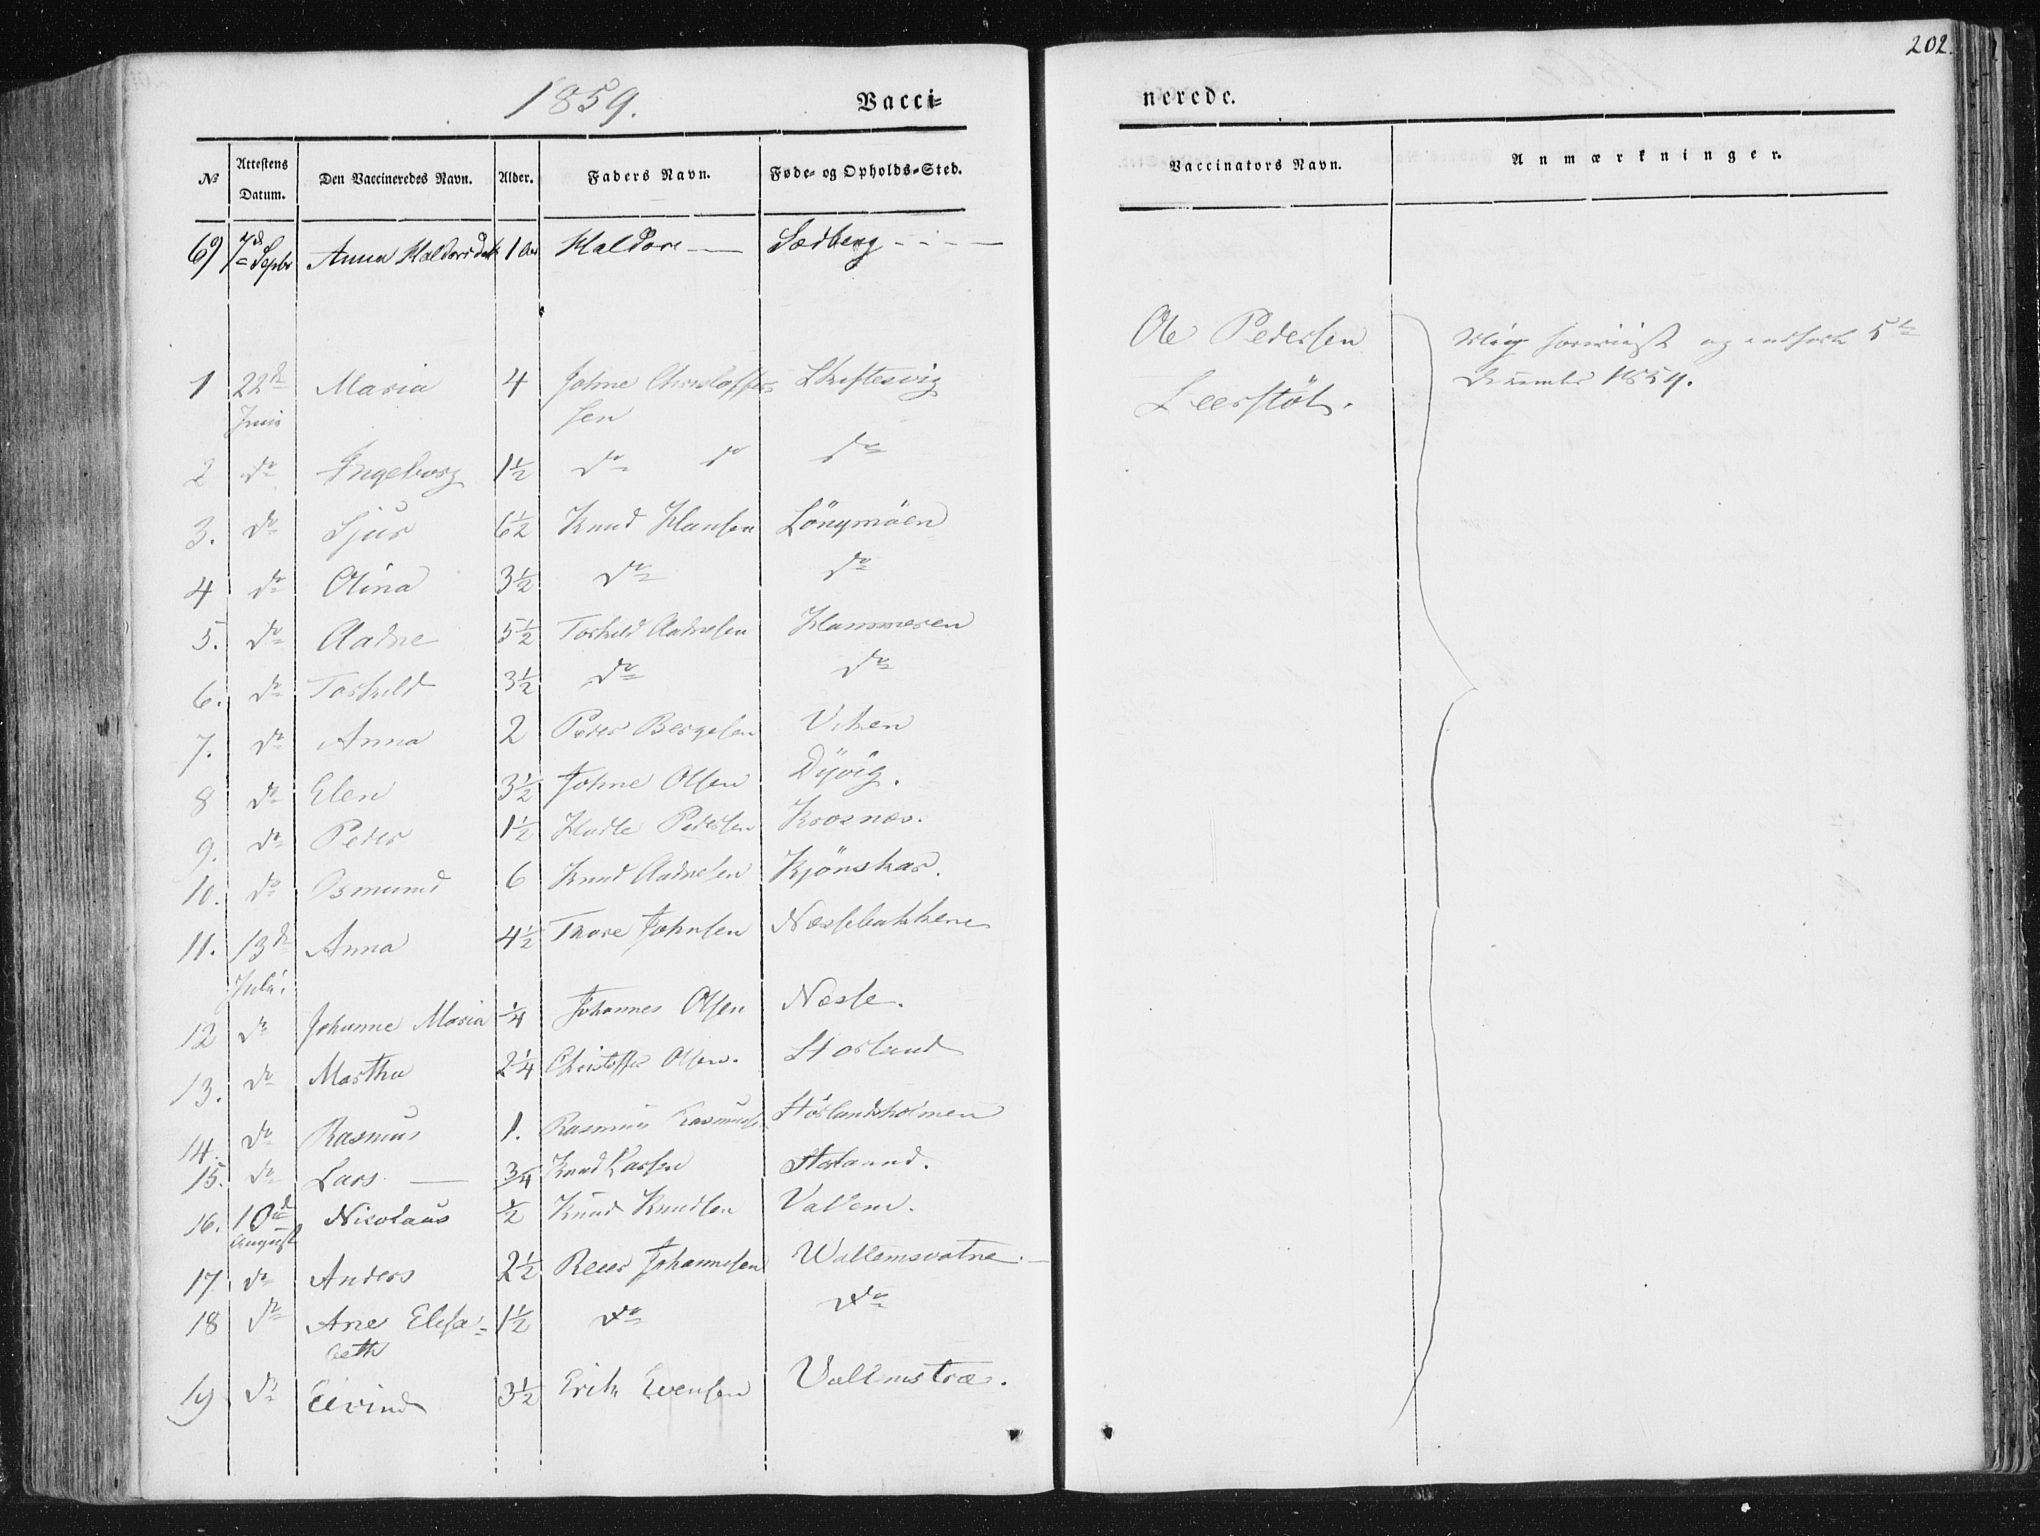 202.
1859. Vacci=
nerede.
No Attestens Datum. Den Vaccineredes Navn. Alder. Faders Navn. Føde= og Opholds=Sted.
Vaccinators Navn. Anmærkninger.
69 7de Septbr Anna Haldorsdat 1 Haldore — Sædberg - - -
1 22de Juni Maria 4 Johne Christoffer
sen
2 do Ingeborg 1½ do do do
3. do Sjur 6½ Knud Hansen Löngmöen
4 do Olina 3½ do do
5. do Aadne 5½ Torkild Aadnesen Hammeren
6. do Torkild 3½ do do
7. do Anna 2 Peder Bergesen Viken
8 do Elen 3½ Johne Olsen Dyvig.
9. do Peder 1½ Hadle Pedersen Krosnæs.
10. do Osmund 6 Knud Aadnesen Kjönskar.
11. 13de Juli. Anna 4½ Thore Johnsen Næssebakkene
12 do Johanne Maria ¼ Johannes Olsen Nesse.
13. do Martha 2¼ Christoffer Olsen. Storland
14. do Rasmus 1. Rasmus Rasmus Störlandsholmen
15. do Lars — ¾ Knud Larsen
16. 10de August Nicolaus ½ Knud Knudsen Vallem.
17 do Anders 2½ Reier Johannesen Wallemsvatne.
18 do Ane Elisa=
beth 1½ do do
19 do Eivind 3½ Erik Evensen Vallemstræ.
Ole Pedersen
Leerstöl.
5te
December 1859.